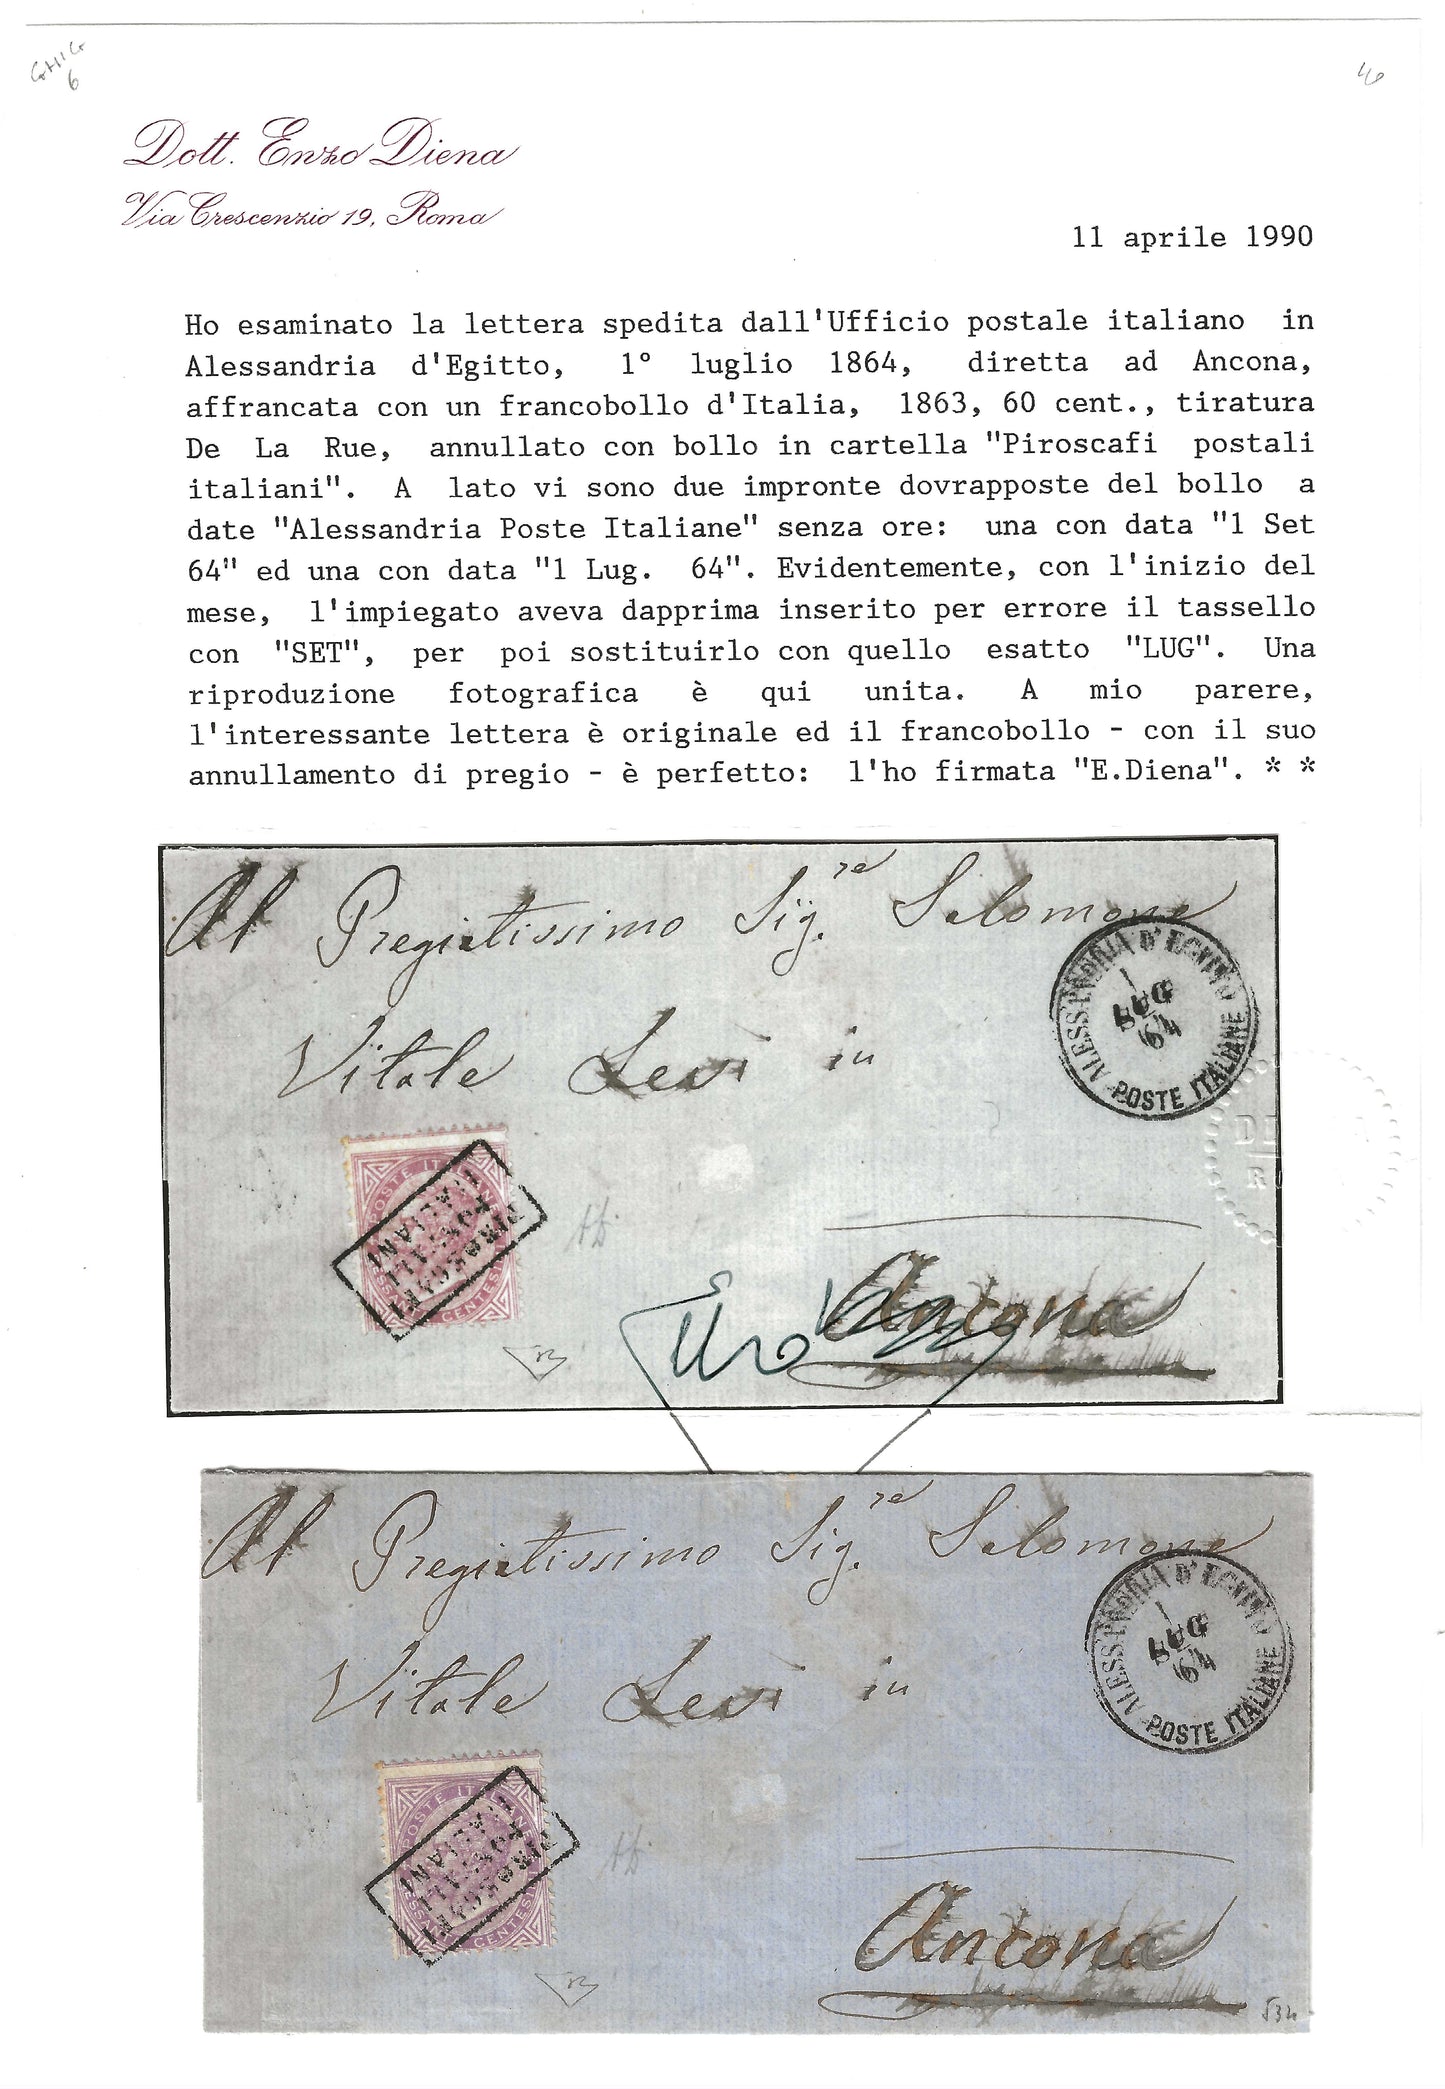 Dott. Enzo Diena
Via Crescenzio 19, Roma
11 aprile 1990
Ho esaminato la lettera spedita dall'Ufficio postale italiano in
Alessandria d'Egitto, 1° luglio 1864, diretta ad Ancona,
affrancata con un francobollo d'Italia, 1863, 60 cent., tiratura
De La Rue, annullato con bollo in cartella "Piroscafi postali
italiani". A lato vi sono due impronte dovrapposte del bollo a
date "Alessandria Poste Italiane" senza ore: una con data "1 Set
64" ed una con data "1 Lug. 64". Evidentemente, con l'inizio del
mese, l'impiegato aveva dapprima inserito per errore il tassello
con "SET", per poi sostituirlo con quello esatto "LUG". Una
riproduzione fotografica è qui unita. A mio parere,
l'interessante lettera è originale ed il francobollo - con il suo
annullamento di pregio - è perfetto: l'ho firmata "E.Diena". * *
Al Pregiatissimo Sig.re Salomone
ALESSANDRIA D'EGITTO
1
LUG
64
POSTE ITALIANE
Vitale Levi in
POSTE ITALIANE
PIROSCAFI
POSTALI
ITALIANI
CENTESIMI
Ancona
Al Pregiatissimo Sig.re Salomone
ALESSANDRIA D'EGITTO
1
LUG
64
POSTE ITALIANE
Vitale Levi in
POSTE ITALIANE
PIROSCAFI
POSTALI
ITALIANI
CENTESIMI
Ancona